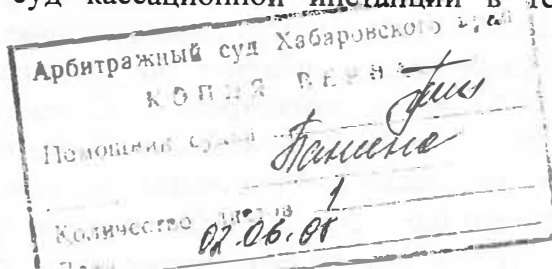 суд кассационной инстанции в
Арбитражный суд Хабаровского
КОПИЯ ВЕРНА
Помощник судьи
Панина
1
Количество листов
02.06.08